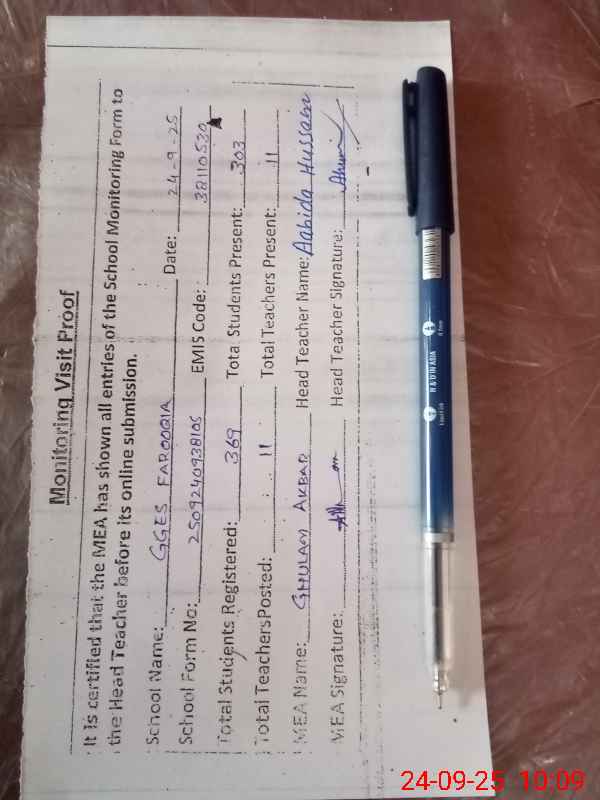 Monitoring Visit Proof
It is certified that the MEA has shown all entries of the School Monitoring Form to
the Head Teacher before its online submission.
School Name: GGES FAROOQIA Date: 24-9-25
School Form No: 2509240938105 EMIS Code: 38110530
Total Students Registered: 369 Total Students Present: 303
Total Teachers Posted: 11 Total Teachers Present: 11
MEA Name: GHULAM AKBAR Head Teacher Name: Aabida Hussain
MEA Signature: Head Teacher Signature:
R & D IN ASIA
24-09-25 10:09